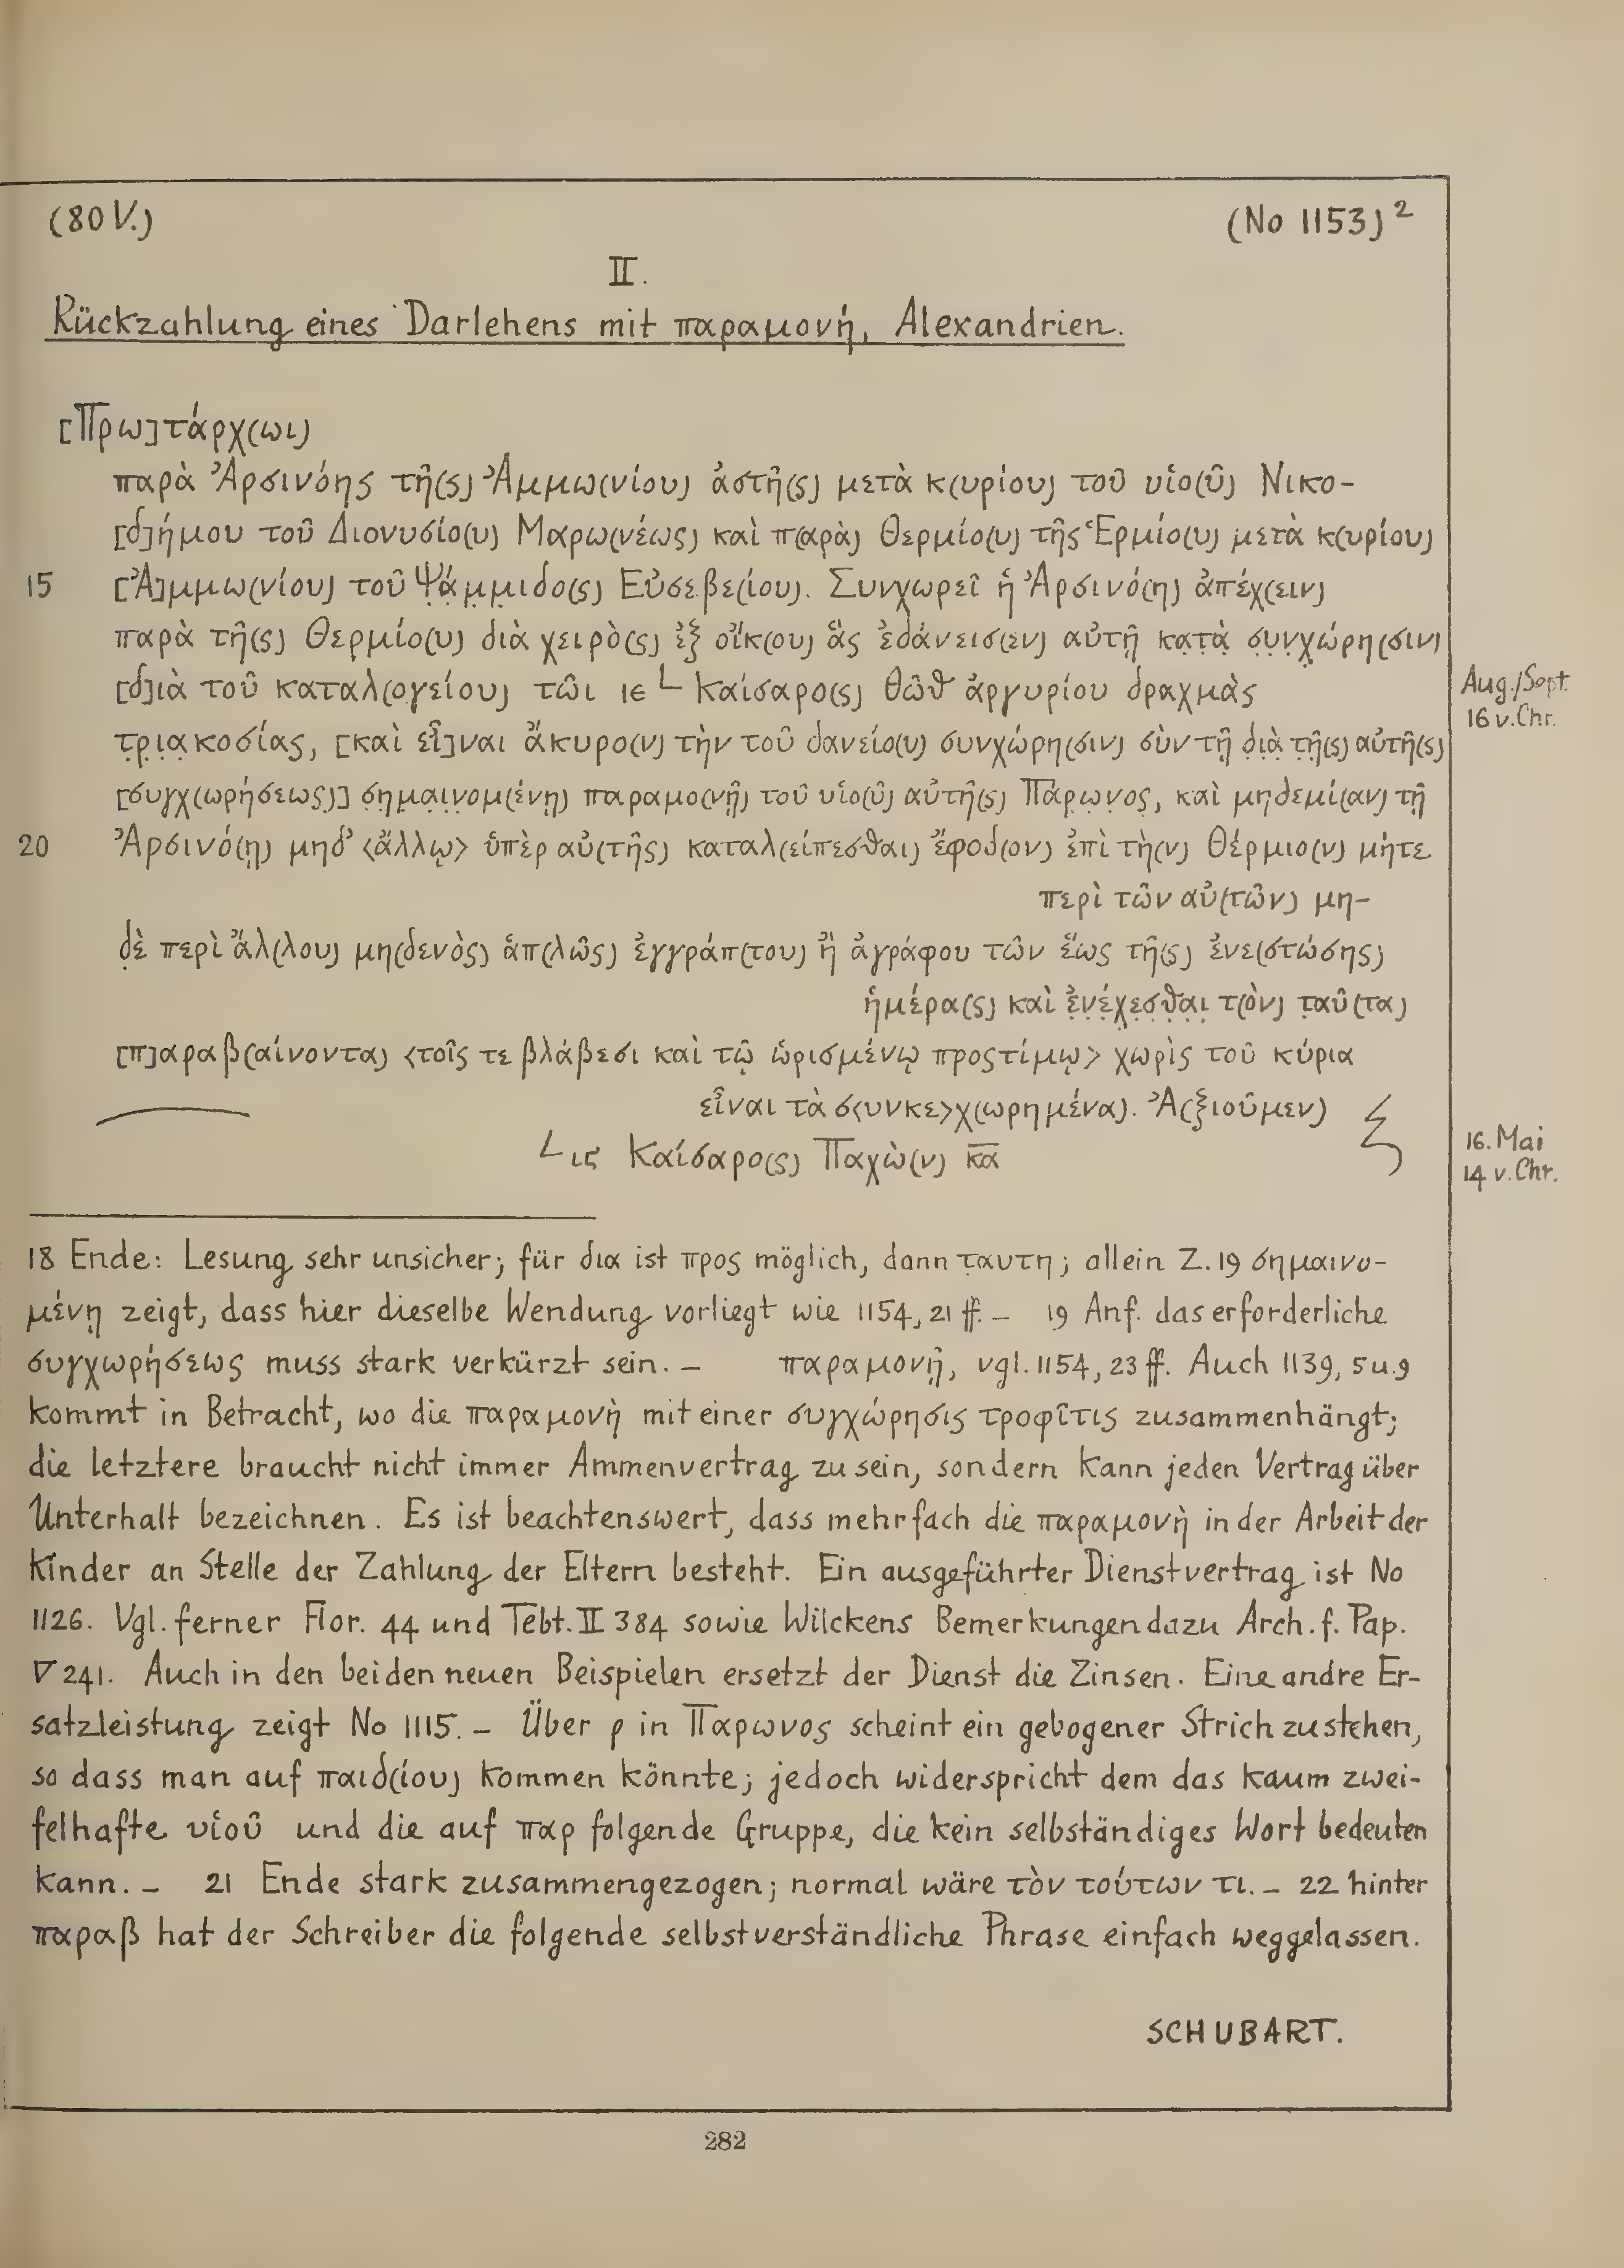 (80 V.) (No 1153)²
II.
Rückzahlung eines Darlehens mit παραμονή, Alexandrien.
[Πρω]τάρχ(ωι)
παρὰ Ἀρσινόης τῆ(ς) Ἀμμω(νίου) ἀστῆ(ς) μετὰ κ(υρίου) τοῦ υἱο(ῦ) Νικο-
[δ]ήμου τοῦ Διονυσίο(υ) Μαρω(νέως) καὶ π(αρὰ) Θερμίο(υ) τῆς Ἑρμίο(υ) μετὰ κ(υρίου)
15 [Ἀ]μμω(νίου) τοῦ Ψ̣ά̣μ̣μ̣ιδο(ς) Εὐσεβε(ίου). Συνχωρεῖ ἡ Ἀρσινό(η) ἀπέχ(ειν)
παρὰ τῆ(ς) Θερμίο(υ) διὰ χειρὸ(ς) ἐξ οἴκ(ου) ἃς ἐδάνεισ(εν) αὐτῇ κ̣α̣τ̣ὰ̣ σ̣υ̣ν̣χ̣ώρη(σιν)
[δ]ιὰ τοῦ καταλ(ογείου) τῶι ιε L Καίσαρο(ς) Θῶθ ἀργυρίου δραχμὰς
Aug./Sept.
16 v. Chr.
τ̣ρ̣ι̣α̣κοσίας, [καὶ εἶ]ναι ἄκυρο(ν) τὴν τοῦ δανείο(υ) συνχώρη(σιν) σὺν τῇ δ̣ι̣ὰ̣ τ̣ῆ̣(ς) αὐτῆ(ς)
[συγχ(ωρήσεως)] σ̣η̣μ̣α̣ι̣ν̣ομ(ένῃ) παραμο(νῇ) τοῦ υἱο(ῦ) αὐτῆ(ς) Πά̣ρ̣ω̣ν̣ο̣ς̣, καὶ μηδεμί(αν) τῇ
20 Ἀρσινό(ῃ) μηδ’ <ἄλλῳ> ὑπὲρ αὐ(τῆς) καταλ(είπεσθαι) ἔφοδ(ον) ἐπὶ τὴ(ν) Θέρμιο(ν) μήτε
περὶ τῶν αὐ(τῶν) μη-
δ̣ὲ περὶ ἄλ(λου) μη(δενὸς) ἁπ(λῶς) ἐγγράπ(του) ἢ ἀγράφου τῶν ἕως τῆ(ς) ἐνε(στώσης)
ἡμέρα(ς) καὶ ἐ̣ν̣έ̣χ̣ε̣σ̣θ̣α̣ι̣ τ(ὸν) τ̣αῦ(τα)
[π]αραβ(αίνοντα) <τοῖς τε βλάβεσι καὶ τῷ ὡρισμένῳ προςτίμῳ> χωρὶς τοῦ κύρια
εἶναι τὰ σ<υνκε>χ(ωρημένα). Ἀ(ξιοῦμεν)
L ις Καίσαρο(ς) Παχὼ(ν) κ̅α̅
16. Mai
14 v. Chr.
18 Ende: Lesung sehr unsicher; für δια ist προς möglich, dann τ̣αυτη; allein Z. 19 σημαινο-
μένῃ zeigt, dass hier dieselbe Wendung vorliegt wie 1154, 21 ff. – 19 Anf. das erforderliche
συγχωρήσεως muss stark verkürzt sein. – παραμονῇ, vgl. 1154, 23 ff. Auch 1139, 5 u. 9
kommt in Betracht, wo die παραμονὴ mit einer συγχώρησις τροφῖτις zusammenhängt;
die letztere braucht nicht immer Ammenvertrag zu sein, sondern kann jeden Vertrag über
Unterhalt bezeichnen. Es ist beachtenswert, dass mehrfach die παραμονὴ in der Arbeit der
Kinder an Stelle der Zahlung der Eltern besteht. Ein ausgeführter Dienstvertrag ist No
1126. Vgl. ferner Flor. 44 und Tebt. II 384 sowie Wilckens Bemerkungen dazu Arch. f. Pap.
V 241. Auch in den beiden neuen Beispielen ersetzt der Dienst die Zinsen. Eine andre Er-
satzleistung zeigt No 1115. – Über ρ in Παρωνος scheint ein gebogener Strich zu stehen,
so dass man auf παιδ(ίου) kommen könnte; jedoch widerspricht dem das kaum zwei-
felhafte υἱοῦ und die auf παρ folgende Gruppe, die kein selbständiges Wort bedeuten
kann. – 21 Ende stark zusammengezogen; normal wäre τὸν τούτων τι. – 22 hinter
παραβ hat der Schreiber die folgende selbstverständliche Phrase einfach weggelassen.
SCHUBART.
282